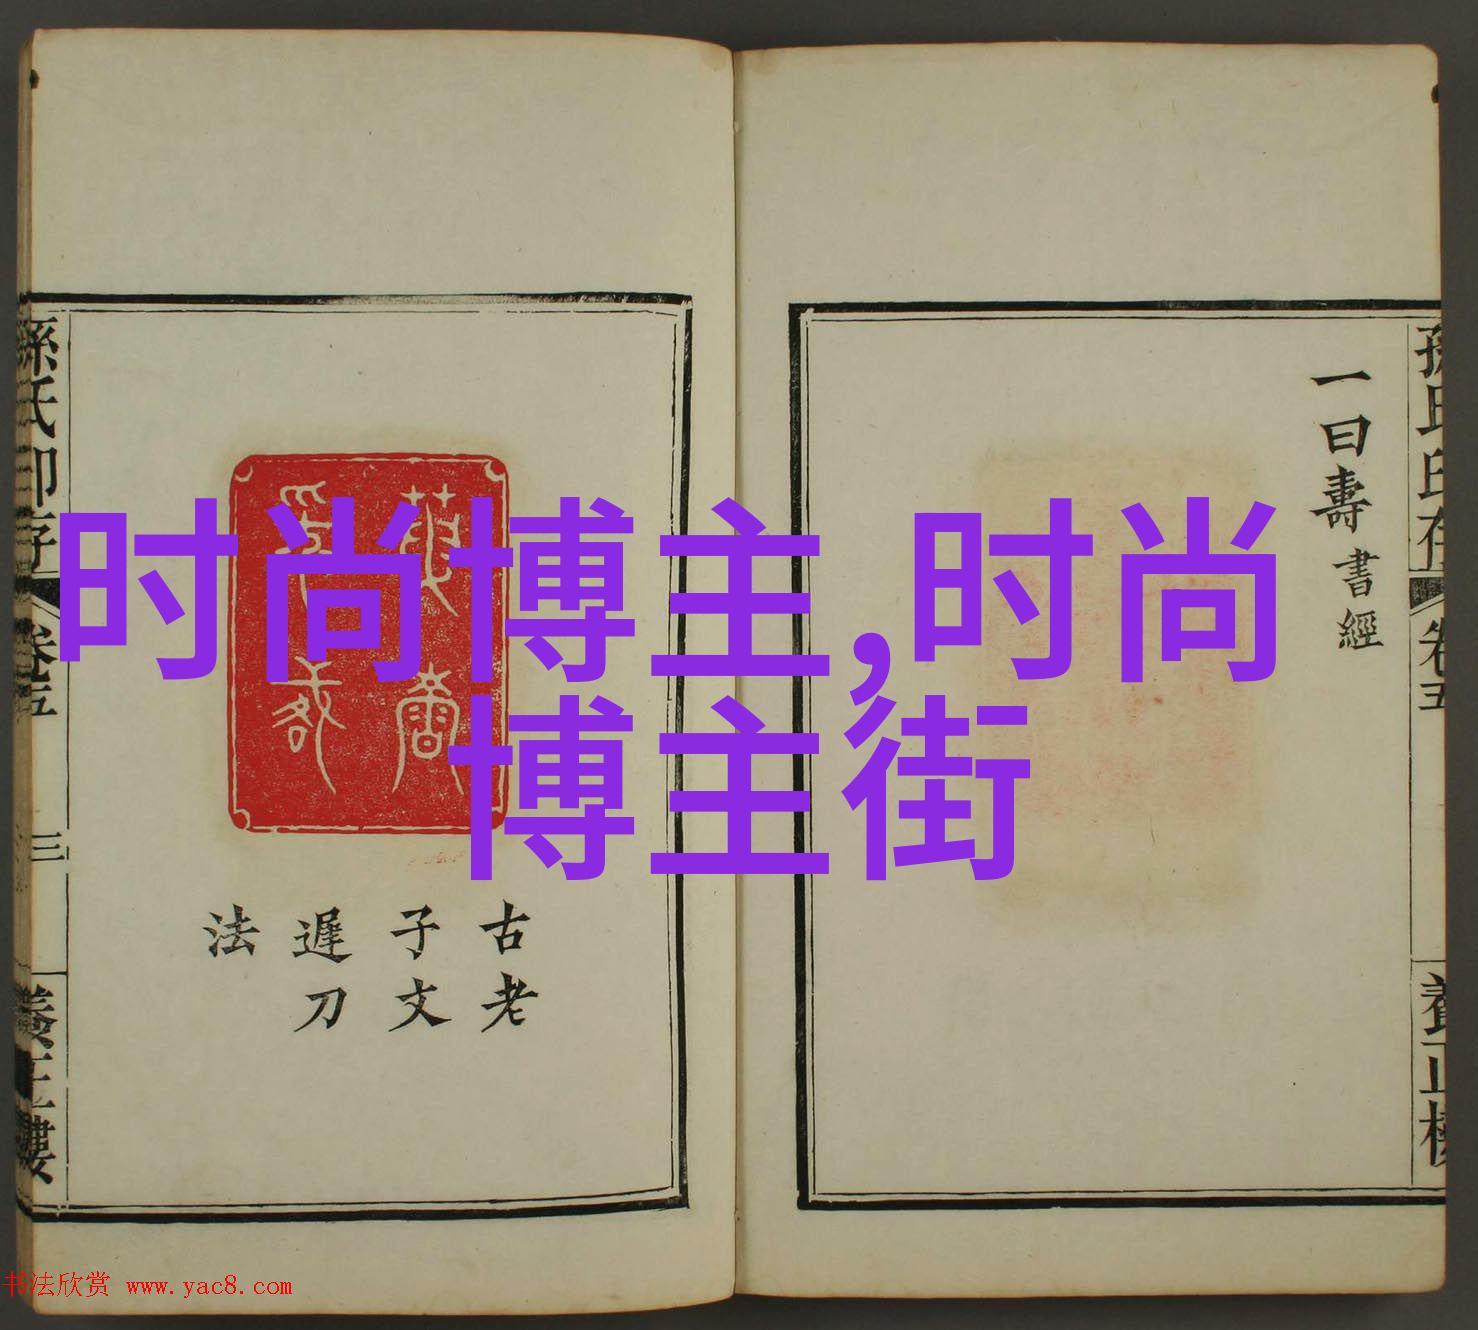 时尚博主,时尚
博主街
一曰壽書經
孫氏印存
卷五
養正樓
古老
子文
遲刀
法
孫氏印存
卷五
三
養正樓
书法欣赏 www.yac8.com